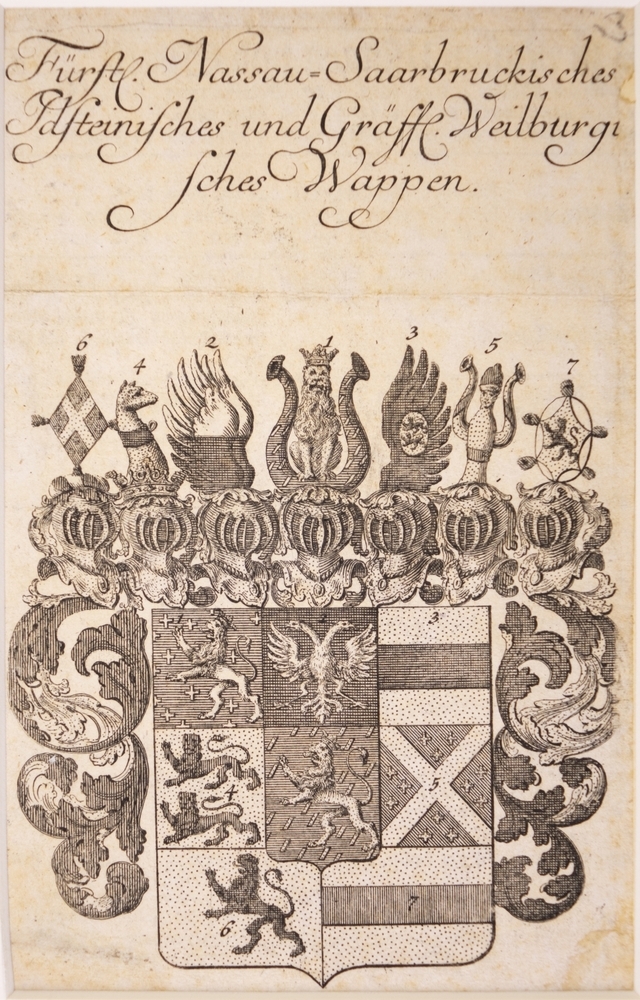 Fürstl. Nassau=Saarbruckisches
Idsteinisches und Gräffl. Weilburgi
sches Wappen.
6 4 2 1 3 5 7
1 2 3
4 5
6 7